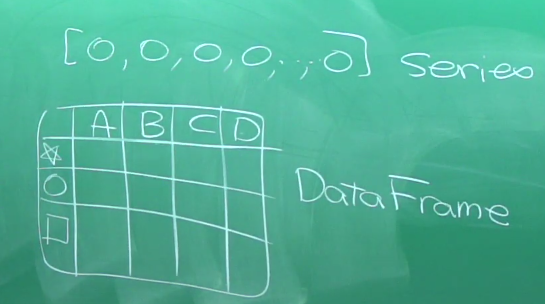 [0,0,0,0,..,0] Series
A B C D
DataFrame